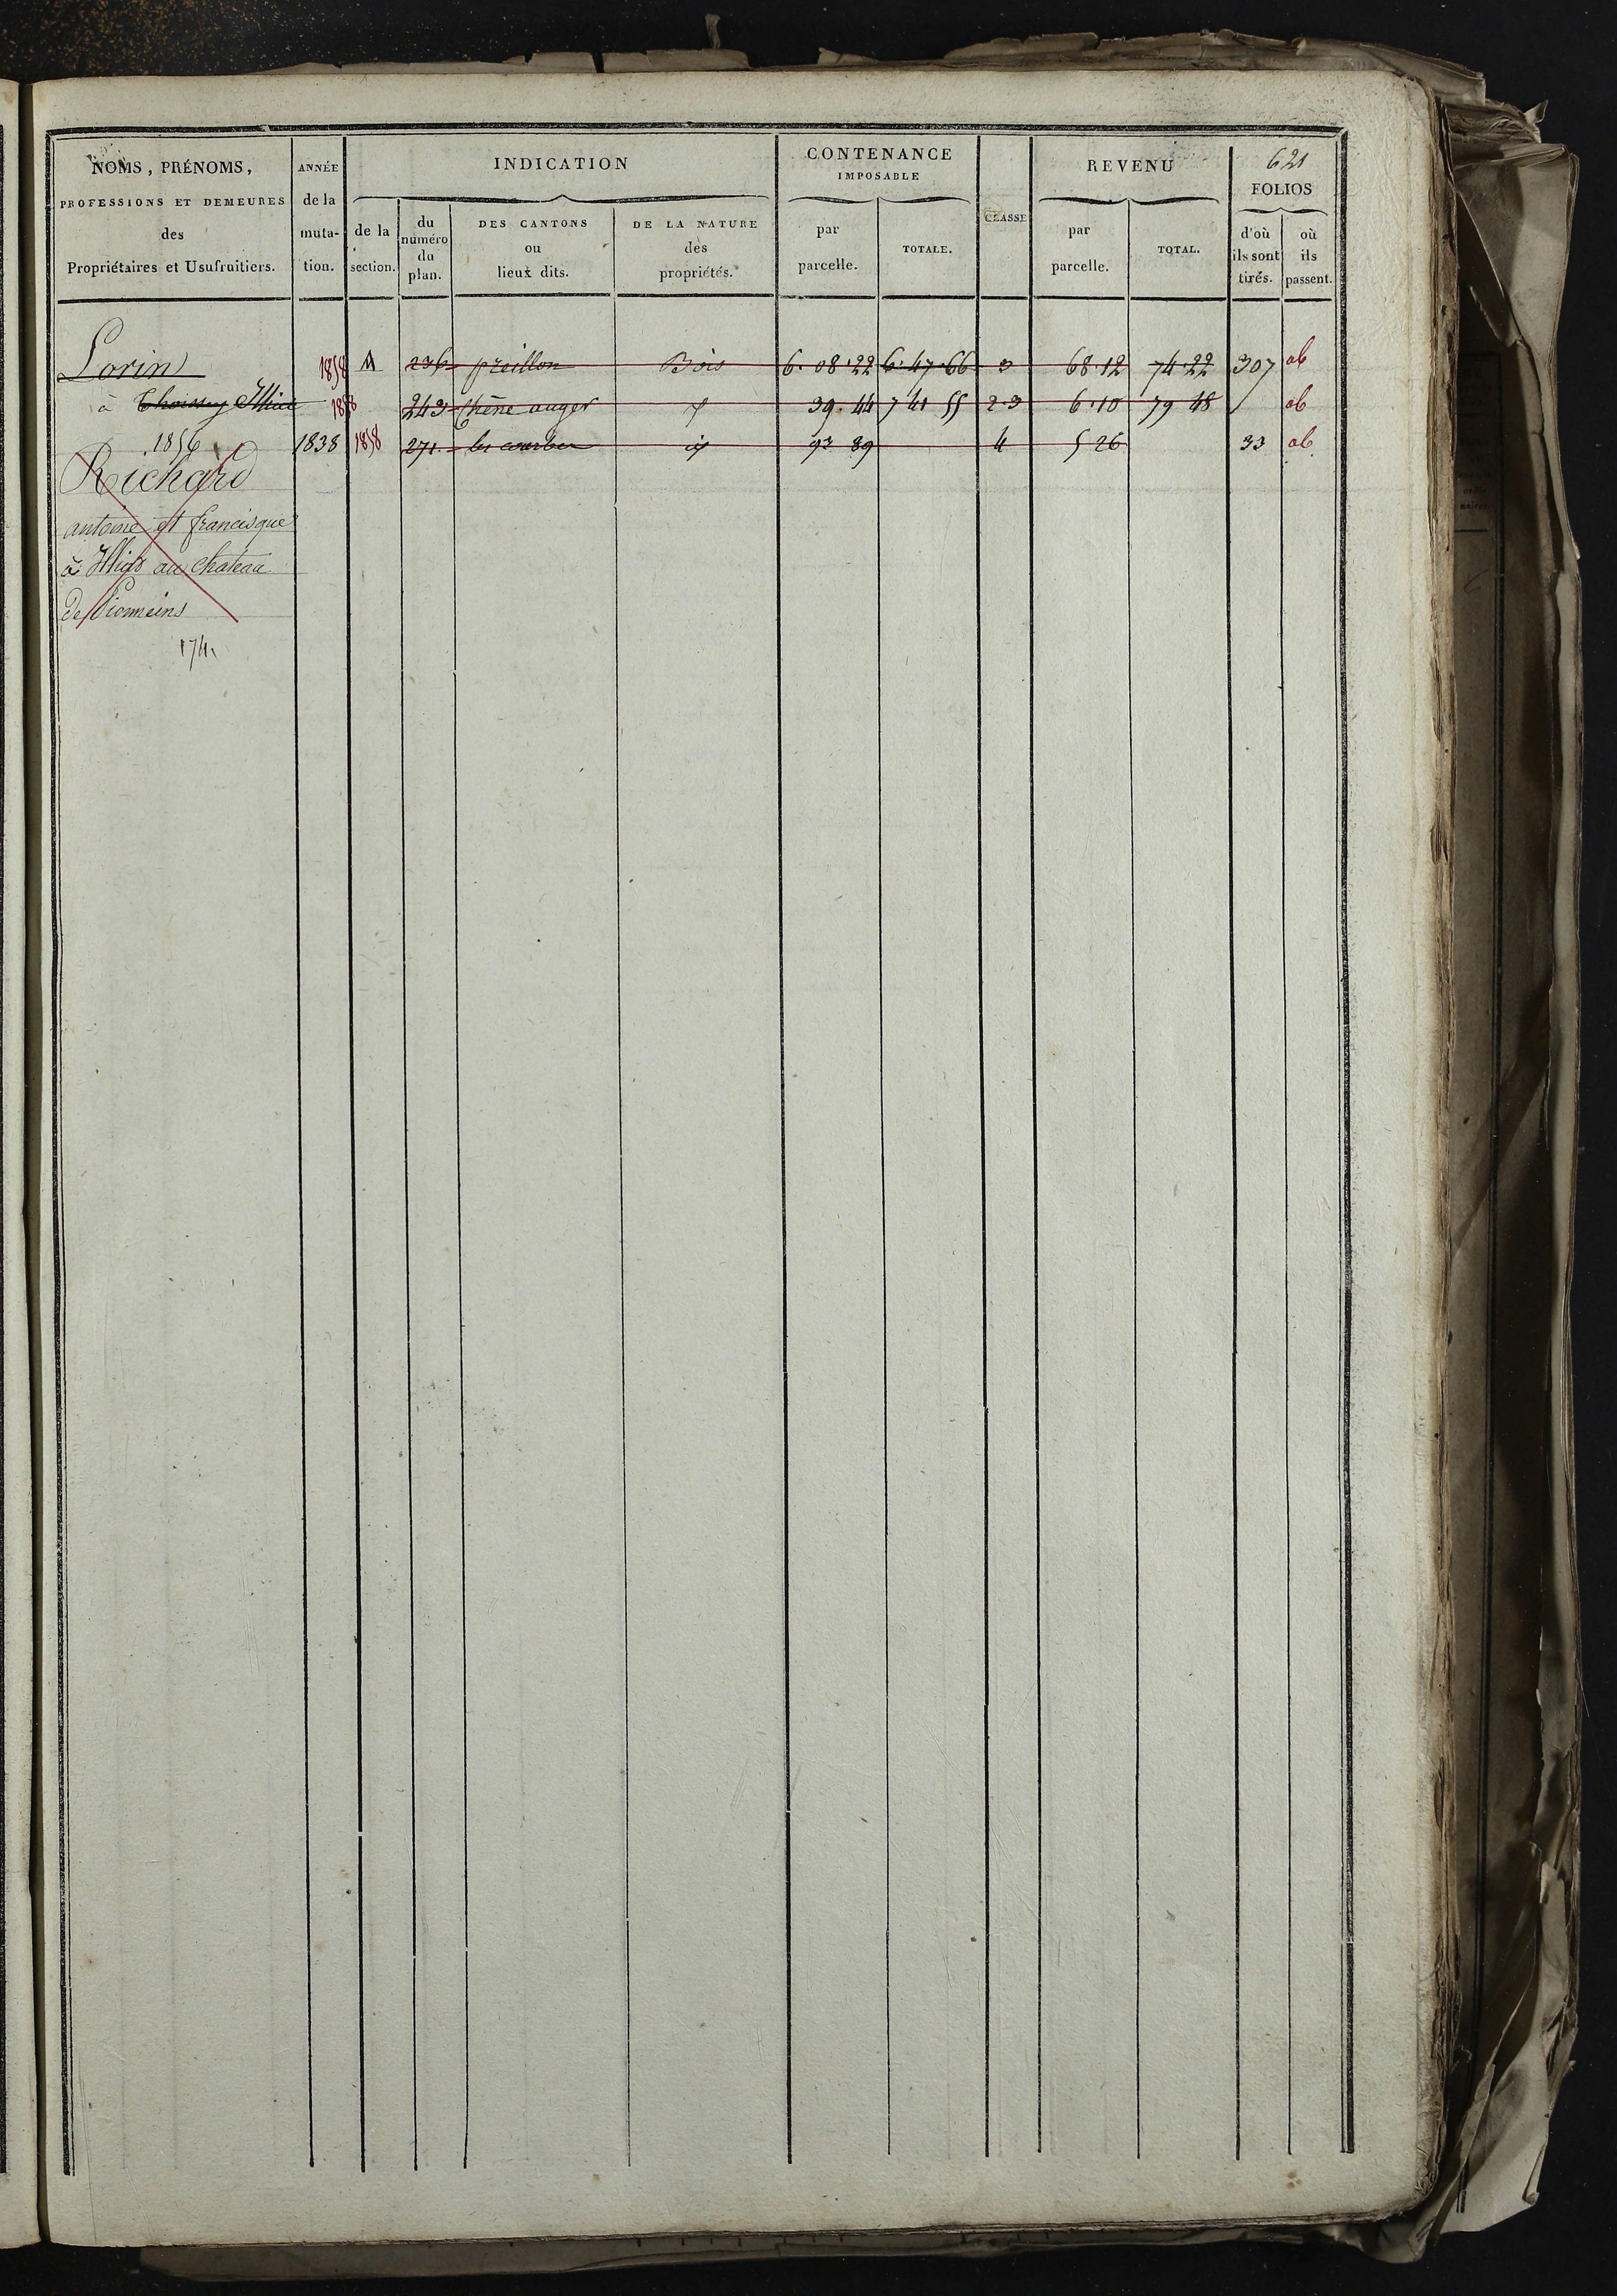 NOMS, PRÉNOMS, ANNÉE INDICATION CONTENANCE REVENU 621
IMPOSABLE FOLIOS
PROFESSIONS ET DEMEURES de la
des muta- de la du DES CANTONS DE LA NATURE par TOTALE. CLASSE par TOTAL. d'où où
numéro ou des ils sont ils
Propriétaires et Usufruitiers. tion. section. du lieux dits. propriétés. parcelle. parcelle. tirés. passent.
plan.
Lorin 1858 M 236 preillon Bois 6. 08.22 6.47.66 3 68.12 74.22 307 ab
à Thoissey Illiat 1858 243 Chêne auger 39.44 7 41 55 2.3 6.10 79 48 ab
1856 1838 1858 271 les courbes 93 89 4 5 26 33 ab
Richard
antoine et francisque
à Illiat au chateau
de Pionneins
174